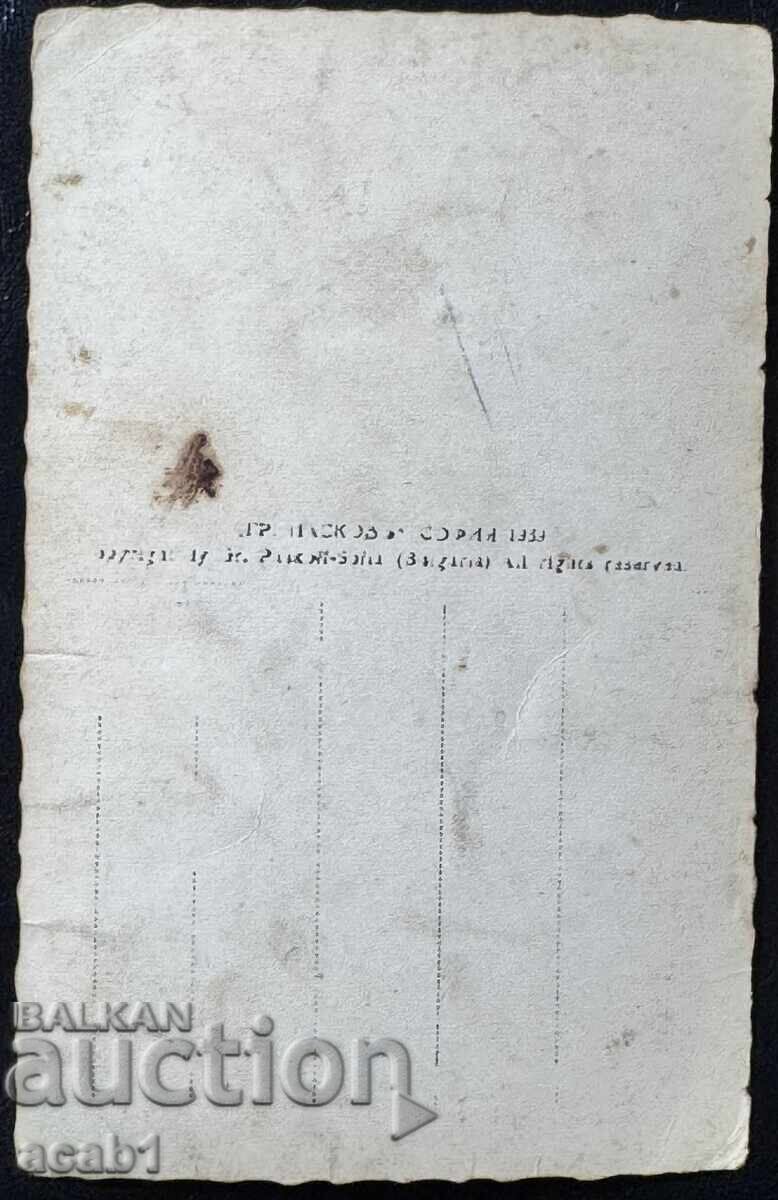 ГР. ПАСКОВЪ СОФИЯ 1939
Copyright by Gr. Paskoff-Sofia (Bulgaria) All rights reserved.
BALKAN
auction
acab1